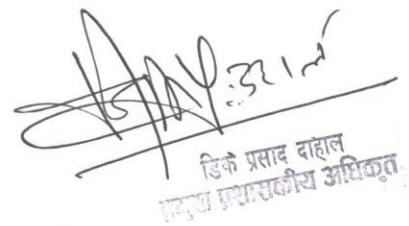 डिके प्रसाद दाहाल
प्रमुख प्रशासकीय अधिकृत